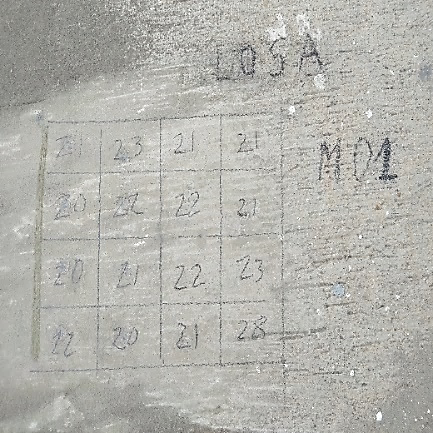 LOSA
21 23 21 21
M01
20 22 22 21
20 21 22 23
22 20 21 28